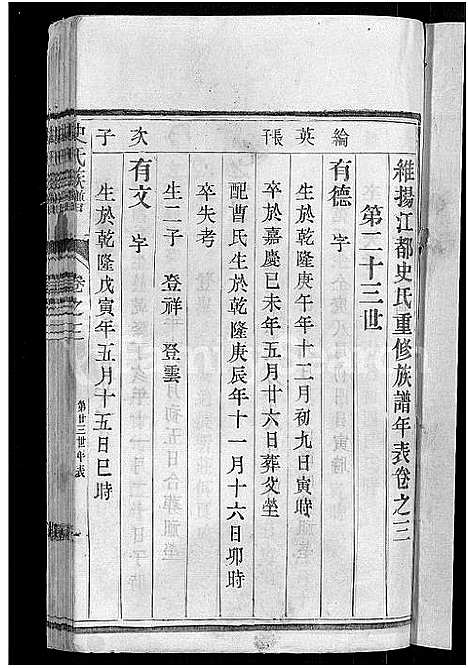 維揚江都史氏重修族譜年表卷之三
第二十三世
綸英長子次
有德 字
生於乾隆庚午年十二月初九日寅時
卒於嘉慶己未年五月廿六日葬父塋
配曹氏生於乾隆庚辰年十一月十六日卯時
卒失考
生二子 登祥 登雲
有文 字
生於乾隆戊寅年五月十五日巳時
史氏族譜 卷之三 第廿三世年表